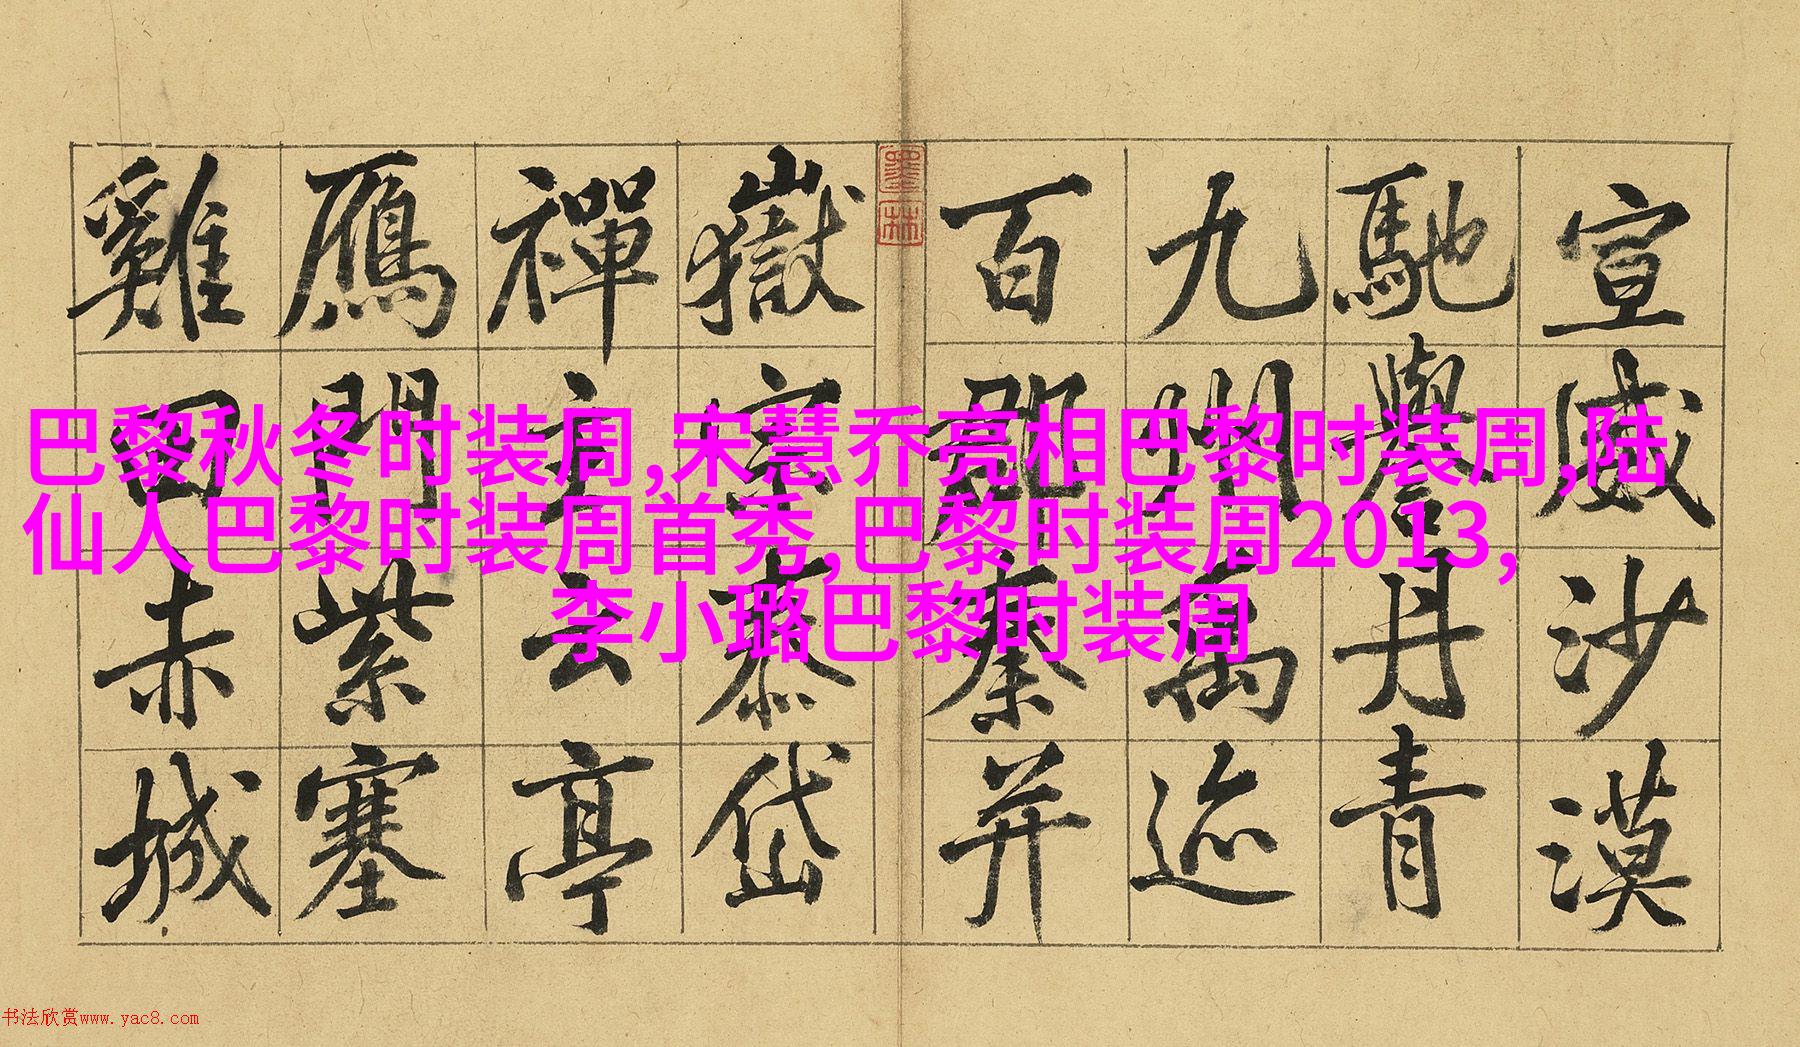 宣威沙漠
馳譽丹青
九州禹迹
百郡秦并
墨林
嶽宗泰岱
禪主云亭
鴈門紫塞
雞田赤城
巴黎秋冬时装周,宋慧乔亮相巴黎时装周,陆
仙人巴黎时装周首秀,巴黎时装周2013,
李小璐巴黎时装周
书法欣赏www.yac8.com